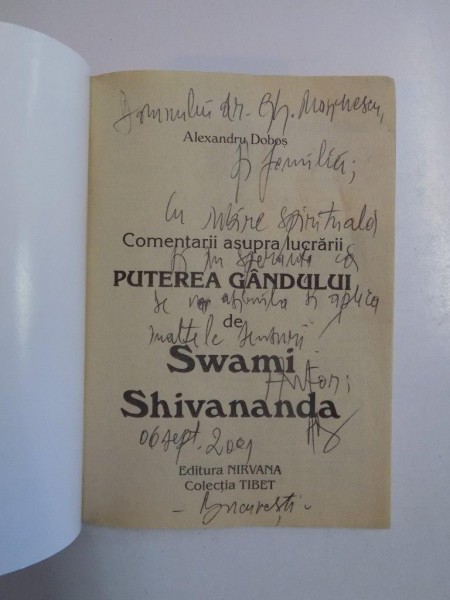 Domnului dr. Gh.
Alexandru Doboș
și familia;
Cu iubire spirituală
Comentarii asupra lucrării
și în speranța că
PUTEREA GÂNDULUI
se va asimila și aplica
de
înaltele sensuri
Swami
Autor:
Shivananda
06 sept. 2001
Editura NIRVANA
Colecția TIBET
- București -